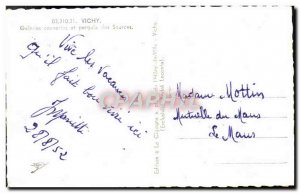 03.310.31. VICHY.
Galeries couvertes et pergola des Sources.
Vive les Vacances
Qu'il fait bon vivre ici
28/8/52
Madame Mottin
Mutuelle du Mans
Le Mans